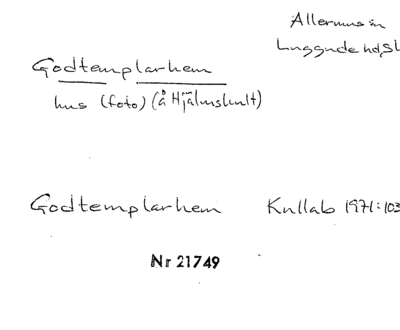 Allerums sn
Luggude hd, Sk
Godtemplarhem
hus (foto) (å Hjälmshult)
Godtemplarhem Kullab 1971:103
Nr 21749